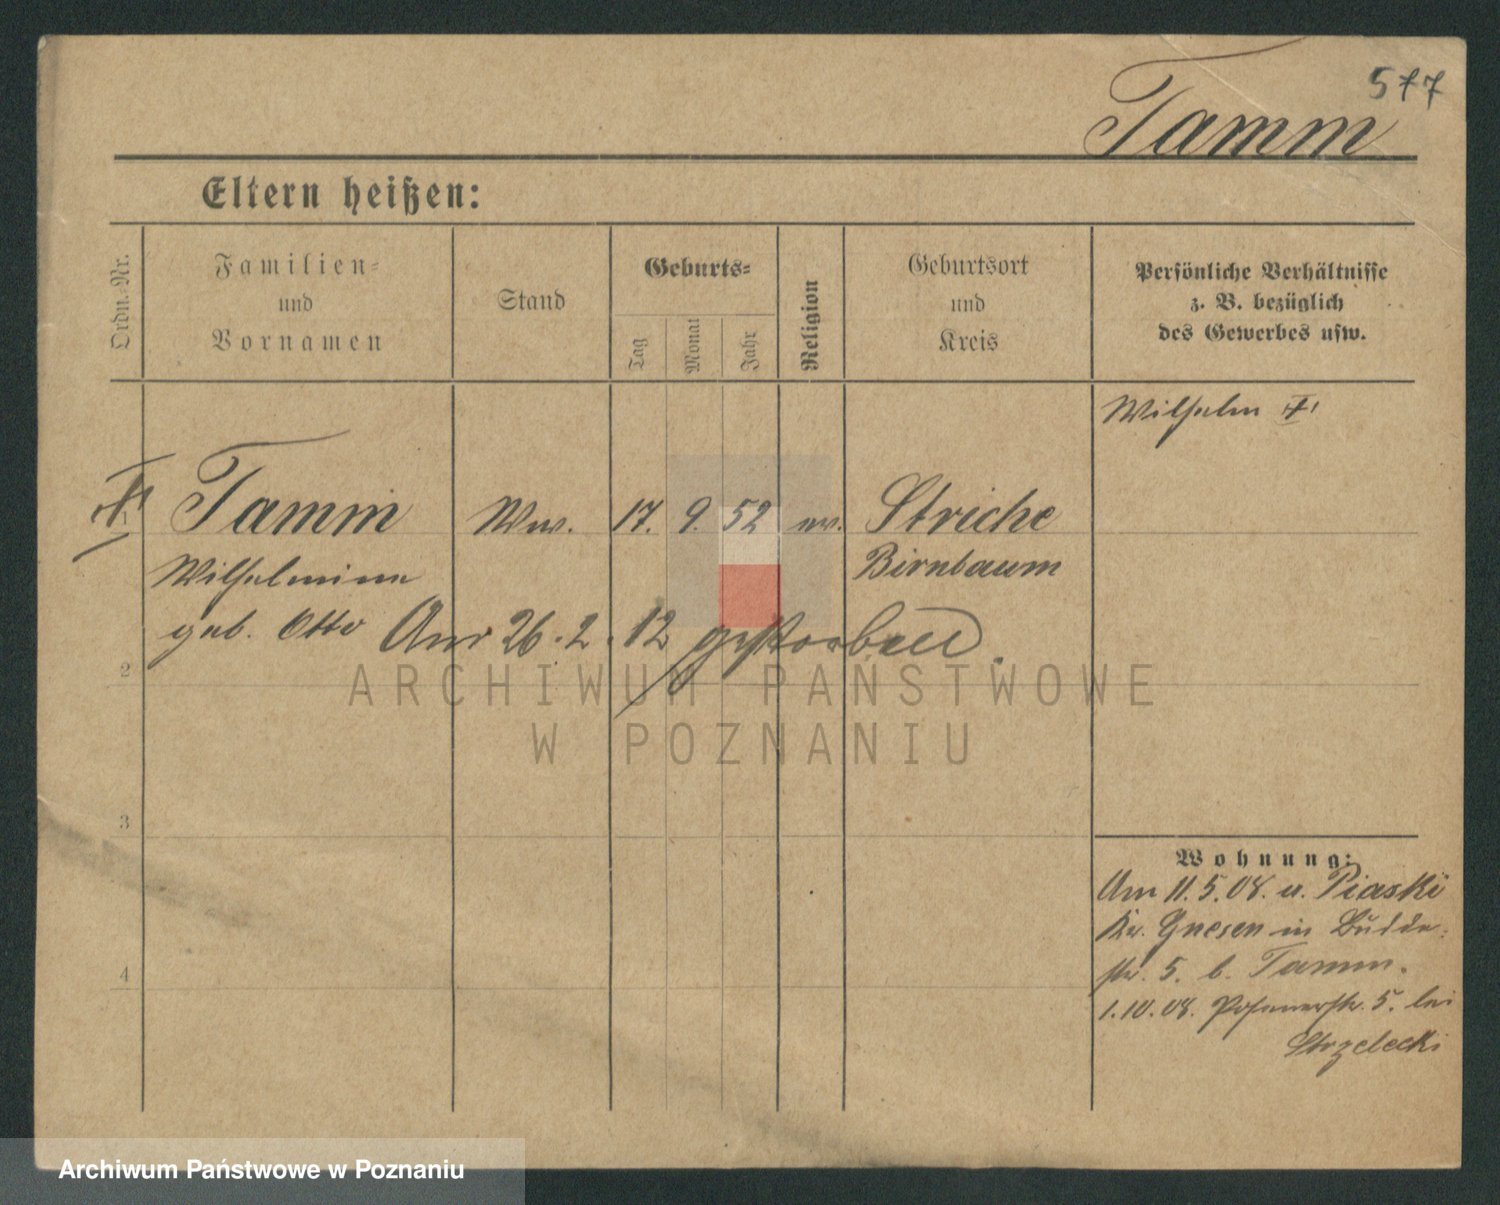 577
Tamm
Eltern heißen:
Ordn.-Nr.
Familien-
und
Vornamen
Stand
Geburts-
Tag
Monat
Jahr
Religion
Geburtsort
und
Kreis
Persönliche Verhältnisse
z. B. bezüglich
des Gewerbes usw.
Wilhelm
Tamm Ww. 17. 9. 52 ev. Striche
Wilhelmine Birnbaum
geb. Otto Am 26.2.12 gestorben.
2
3
4
Wohnung:
Am 11.5.08. v. Piaski
Kr. Gnesen in Budde-
str. 5. b. Tamm.
1.10.08. Posenerstr. 5. bei
Strzelecki
ARCHIWUM PAŃSTWOWE
W POZNANIU
Archiwum Państwowe w Poznaniu